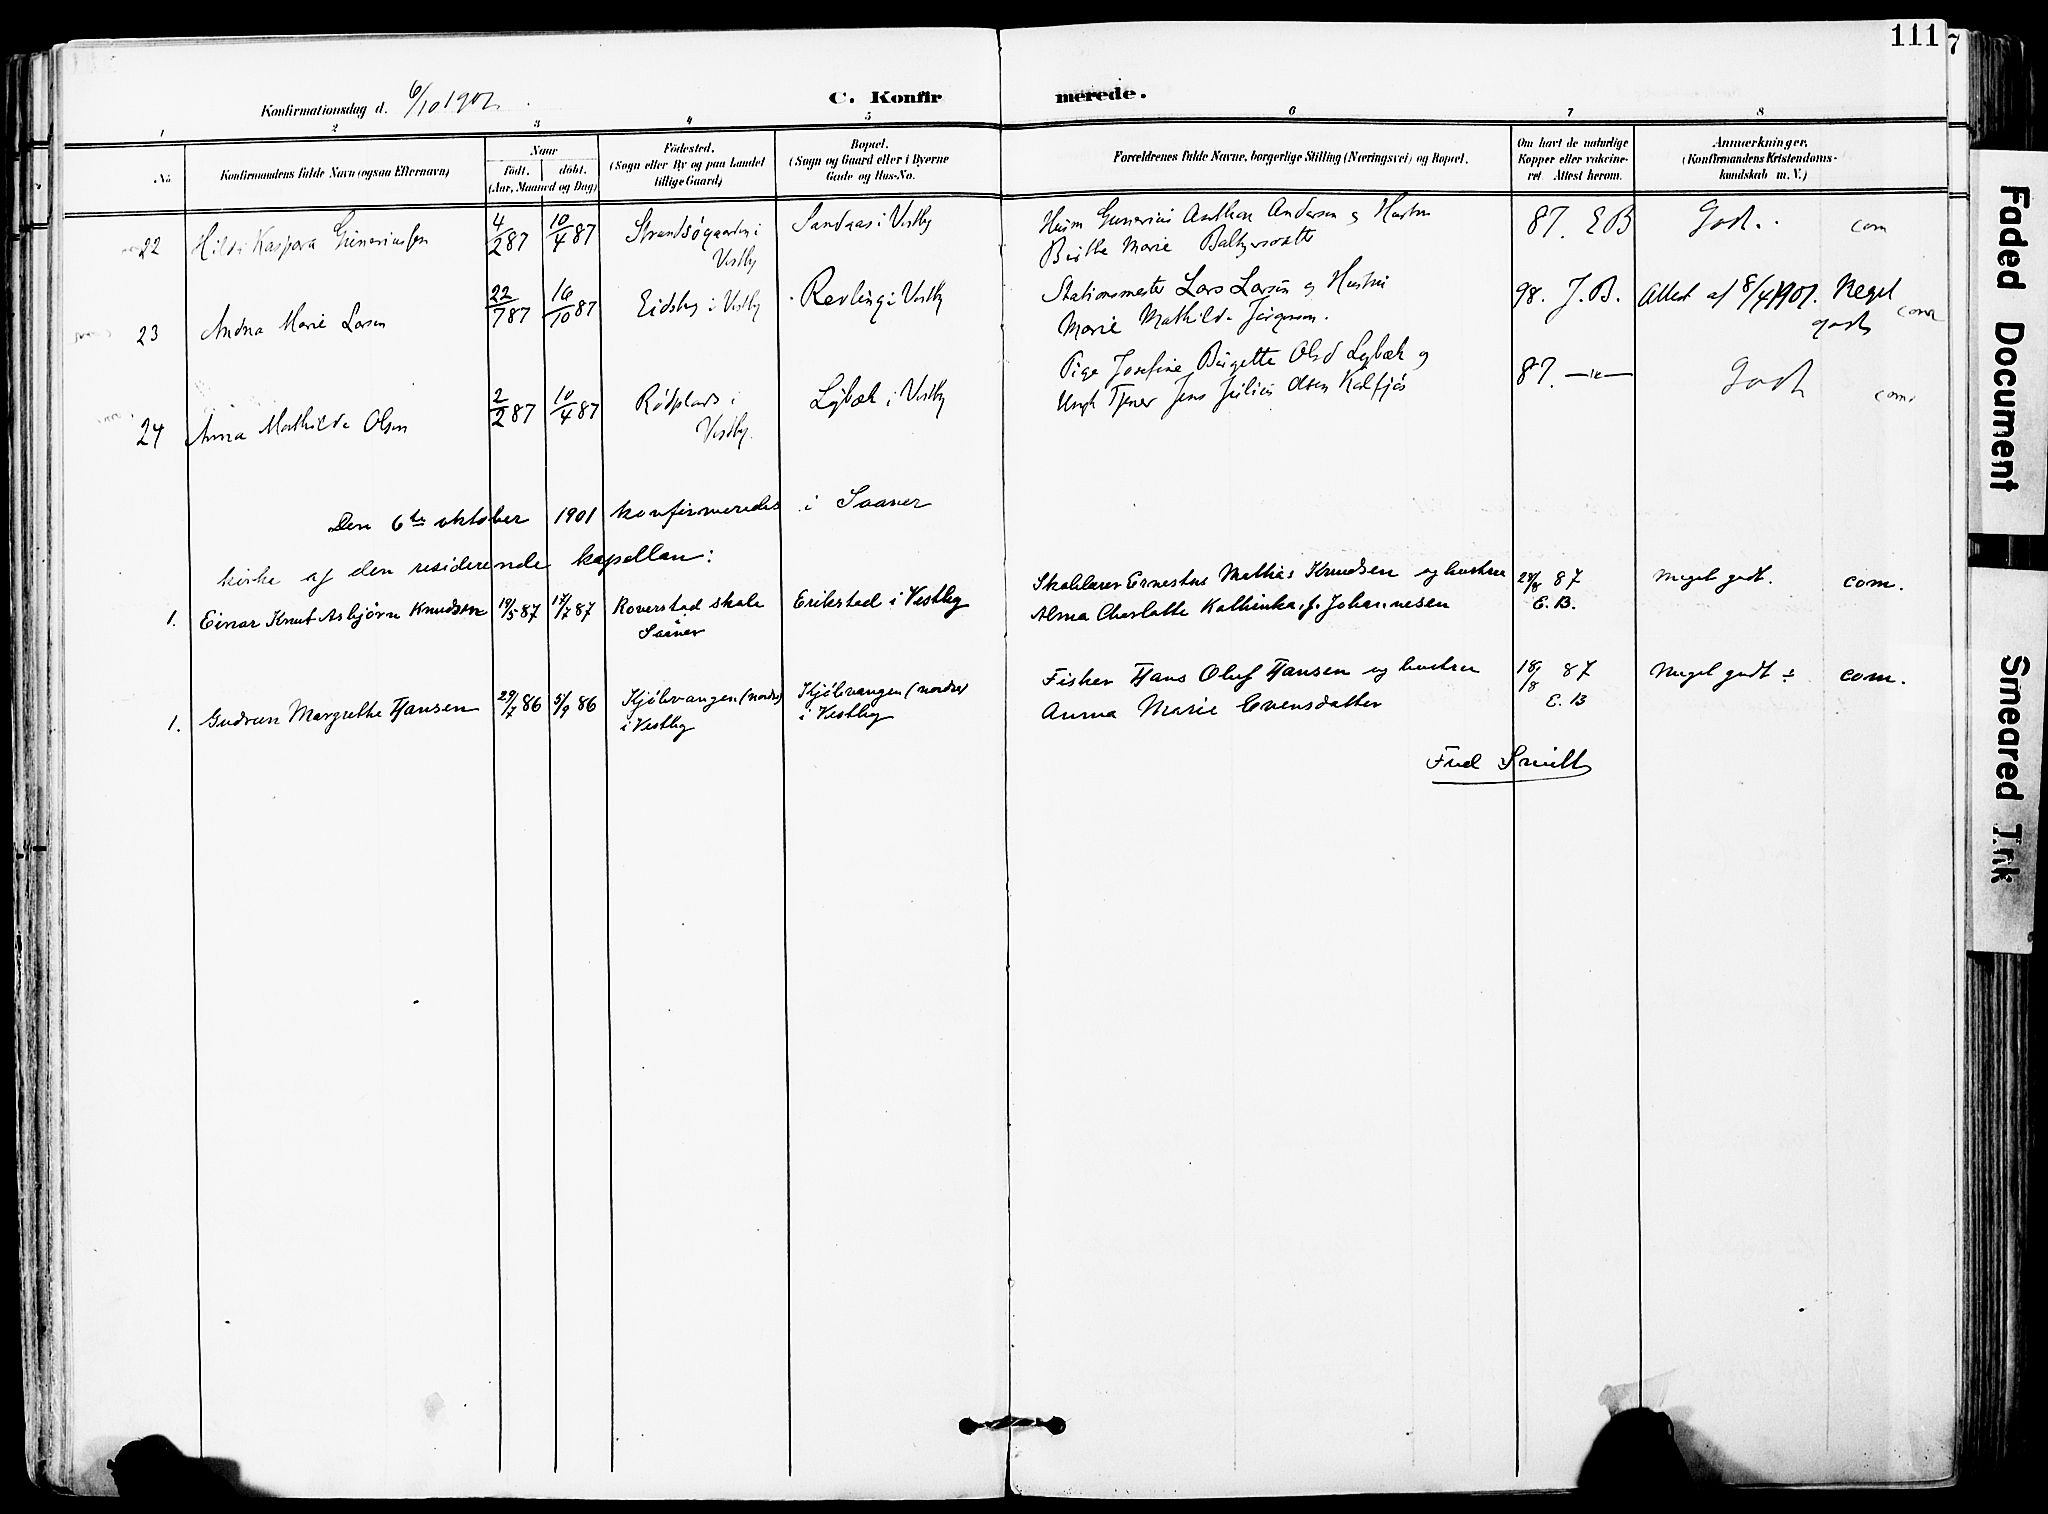 111
7
Konfirmationsdag d. 6/10 1901.
C. Konfirmerede.
1 2 3 4 5 6 7 8
No
Konfirmandens fulde Navn (ogsaa Efternavn)
Naar
födt. döbt.
(Aar, Maaned og Dag)
Födested.
(Sogn eller By og paa Landet
tillige Gaard)
Bopæl.
(Sogn og Gaard eller i Byerne
Gade og Hus-No.
Forældrenes fulde Navne, borgerlige Stilling (Næringsvei) og Bopæl.
Om havt de naturlige
Kopper eller vakcine-
ret. Attest herom.
Anmærkninger.
(Konfirmandens Kristendoms-
kundskab m. V.)
22 Kaspara Gunerius 4/2 87 10/4 87 i Vestby Sandaas i Vestby Gunerius Anthon Andersen og Hustru Marie 87. E B Godt. com
23 Marie Larsen 22/7 87 16/10 87 Eidsby i Vestby Revling i Vestby Stationsmester Lars Larsen og Hustru
Marie Mathilde 98. J. B. Attest af 8/4 1901. Meget
godt com
24 Anna Mathilde Olsen 2/2 87 10/4 87 Rødplads i
Vestby. Lybæk i Vestby Pige Josefine Birgette Olsd Lybæk og
Ungk Tjener Jens Julius Olsen 87. —"— Godt com.
Den 6te oktober 1901 konfirmeredes i Saaner
kirke af den residerende kapellan:
1. Einar Knut Asbjørn Knudsen 19/5 87 17/7 87 Roverstad skole
Saaner Erikstad i Vestby Skolelærer Ernestus Mathias Knudsen og hustru
Alma Charlotte Kathinka, f. Johannesen 28/8 87
E. B. Meget godt. com.
1. Gudrun Margrethe Hansen 29/7 86 5/9 86 Kjølvangen (nordre)
i Vestby Kjølvangen (nordre)
i Vestby Fisker Hans Oluf Hansen og hustru
Anna Marie Evensdatter 18/8 87
E. B Meget godt ÷ com.
Fred Smitt
Faded Document
Smeared Ink